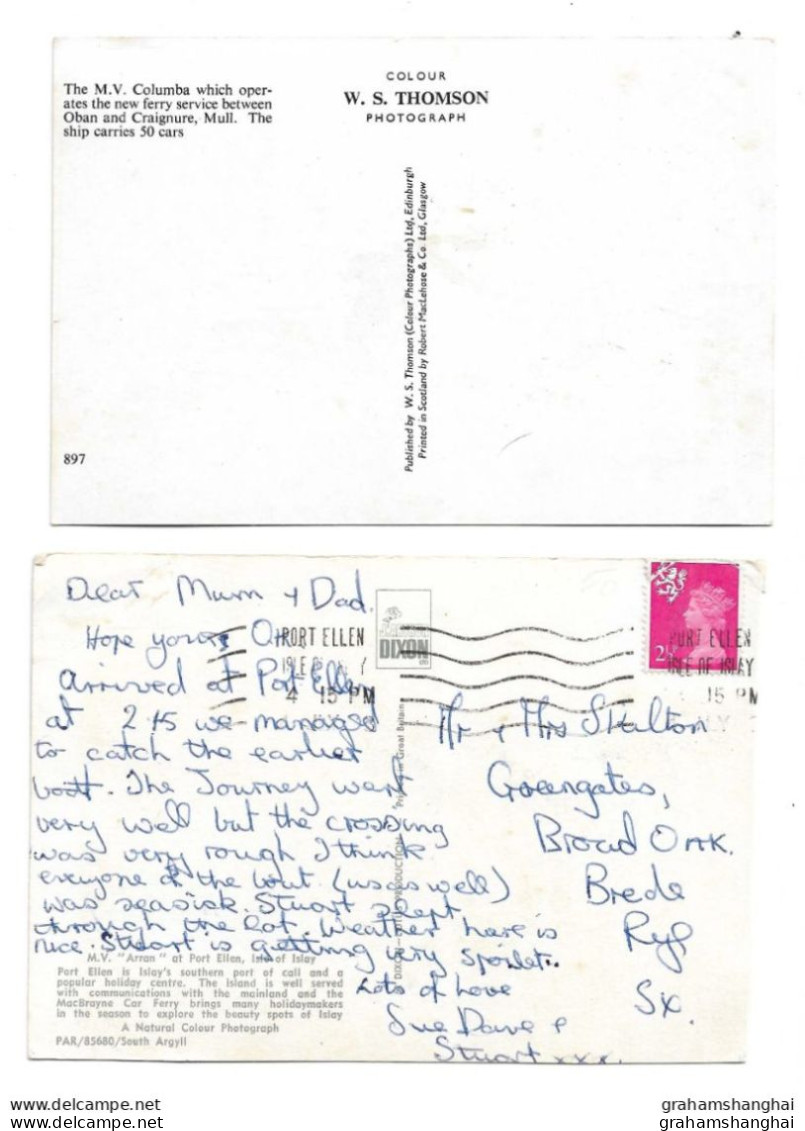 The M.V. Columba which oper-
ates the new ferry service between
Oban and Craignure, Mull. The
ship carries 50 cars
COLOUR
W. S. THOMSON
PHOTOGRAPH
Published by W. S. Thomson (Colour Photographs) Ltd, Edinburgh
Printed in Scotland by Robert MacLehose & Co. Ltd, Glasgow
897
Dear Mum + Dad.
Hope yours
arrived at Port Ellen
at 2 15 we managed
to catch the earlier
boat. The Journey went
very well but the crossing
was very rough I think
everyone of the bout (us as well)
was seasick. Stuart slept
through the lot. Weather here is
nice. Stuart is getting very spoilet.
Lots of Love
Sue Dave &
Stuart xxx.
DIXON
PORT ELLEN
4 15 PM
2½
PORT ELLEN
ISLE OF ISLAY
15 PM
Mr + Mrs Skelton
Greengates,
Broad Oak.
Brede
Rye
SX.
Printed in Great Britain.
M.V. "Arran" at Port Ellen, Isle of Islay
Port Ellen is Islay's southern port of call and a
popular holiday centre. The Island is well served
with communications with the mainland and the
MacBrayne Car Ferry brings many holidaymakers
in the season to explore the beauty spots of Islay
A Natural Colour Photograph
PAR/85680/South Argyll
grahamshanghai
grahamshanghai